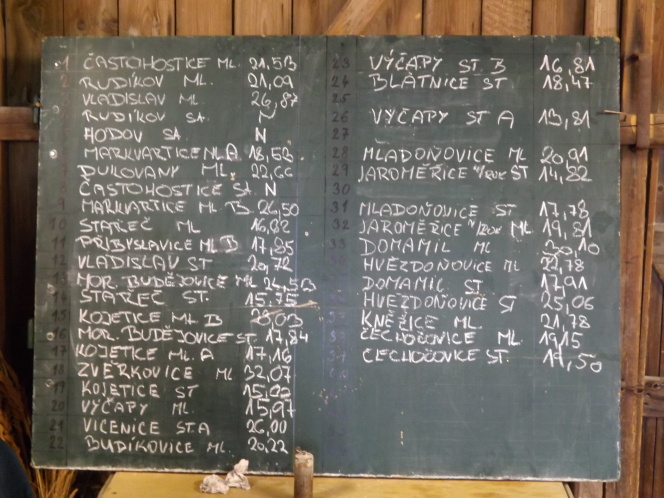 1 ČASTOHOSTICE ML. 21,53
2 RUDÍKOV ML. 21,09
VLADISLAV ML 26,87
RUDÍKOV SA. N
HODOV SA. N
MARKVARTICE ML A 18,53
DUKOVANY ML. 22,66
ČASTOHOSTICE St. N
9 MARKVARTICE ML B 26,50
10 STAŘEČ ML 16,82
11 PŘIBYSLAVICE ML B 17,85
12 VLADISLAV ST 20,72
13 MOR. BUDĚJOVICE ML 24,53
14 STAŘEČ ST. 15,75
15 KOJETICE ML B 23,03
16 MOR. BUDĚJOVICE ST. 17,84
17 KOJETICE ML. A 17,16
18 ZVĚRKOVICE ML 32,07
19 KOJETICE ST
20 VÝČAPY ML. 15,97
21 VICENICE ST.A 26,00
22 BUDÍKOVICE ML. 20,22
23 VÝČAPY ST. B 16,81
24 BLATNICE ST 18,47
25
26 VÝČAPY ST A 13,81
27
28 MLADOŇOVICE ML 20,91
29 JAROMĚŘICE ST 14,22
30
31 MLADOŇOVICE ST 17,78
32 JAROMĚŘICE ML 19,81
33 DOMAMIL ML 30,10
HVĚZDOŇOVICE ML 22,78
DOMAMIL ST 17,91
HVĚZDOŇOVICE ST 25,06
KNĚŽICE ML. 21,78
ČECHOČOVICE ML. 19,15
ČECHOČOVICE ST. 19,50